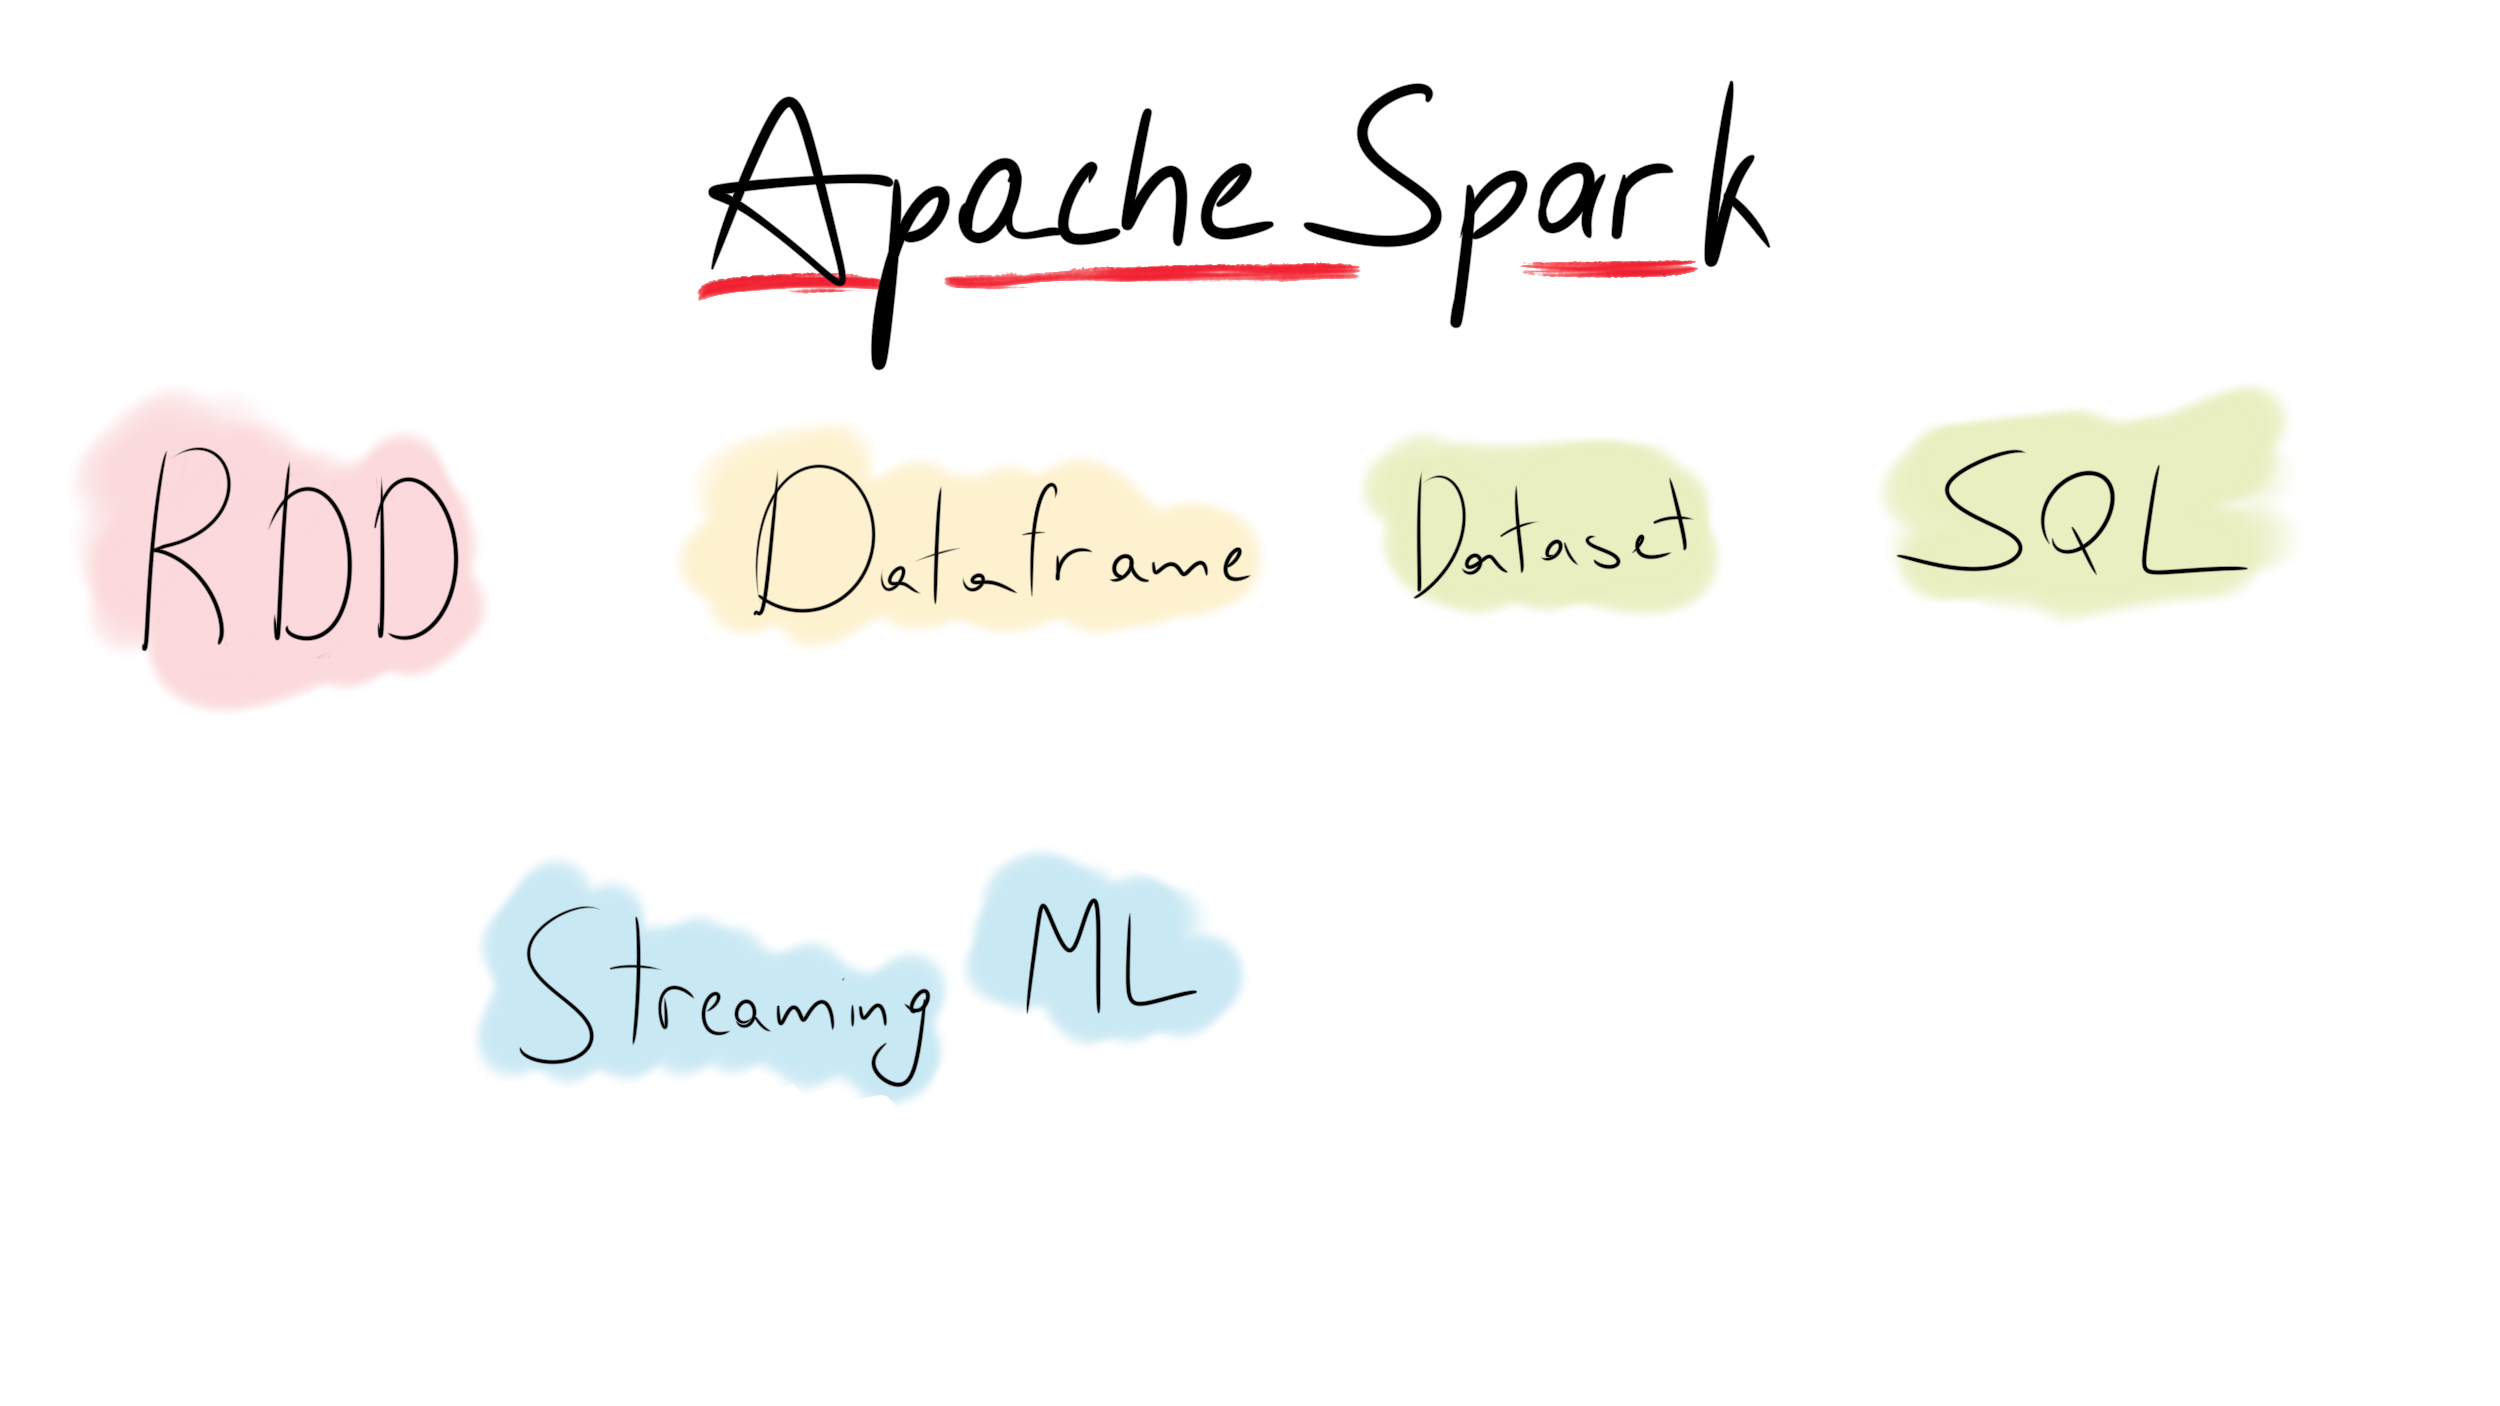 Apache Spark
RDD Dataframe Dataset SQL
Streaming ML